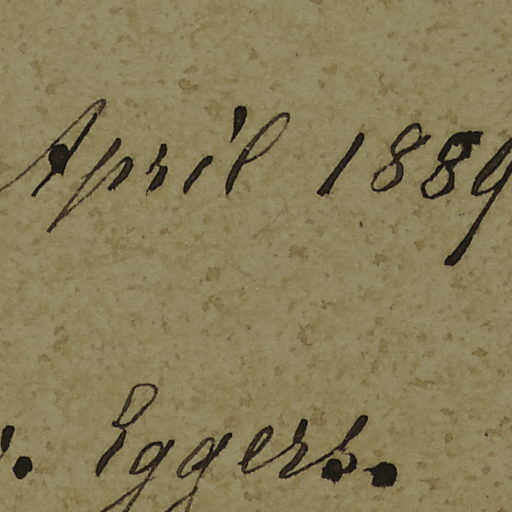 April 1889
. Eggers.